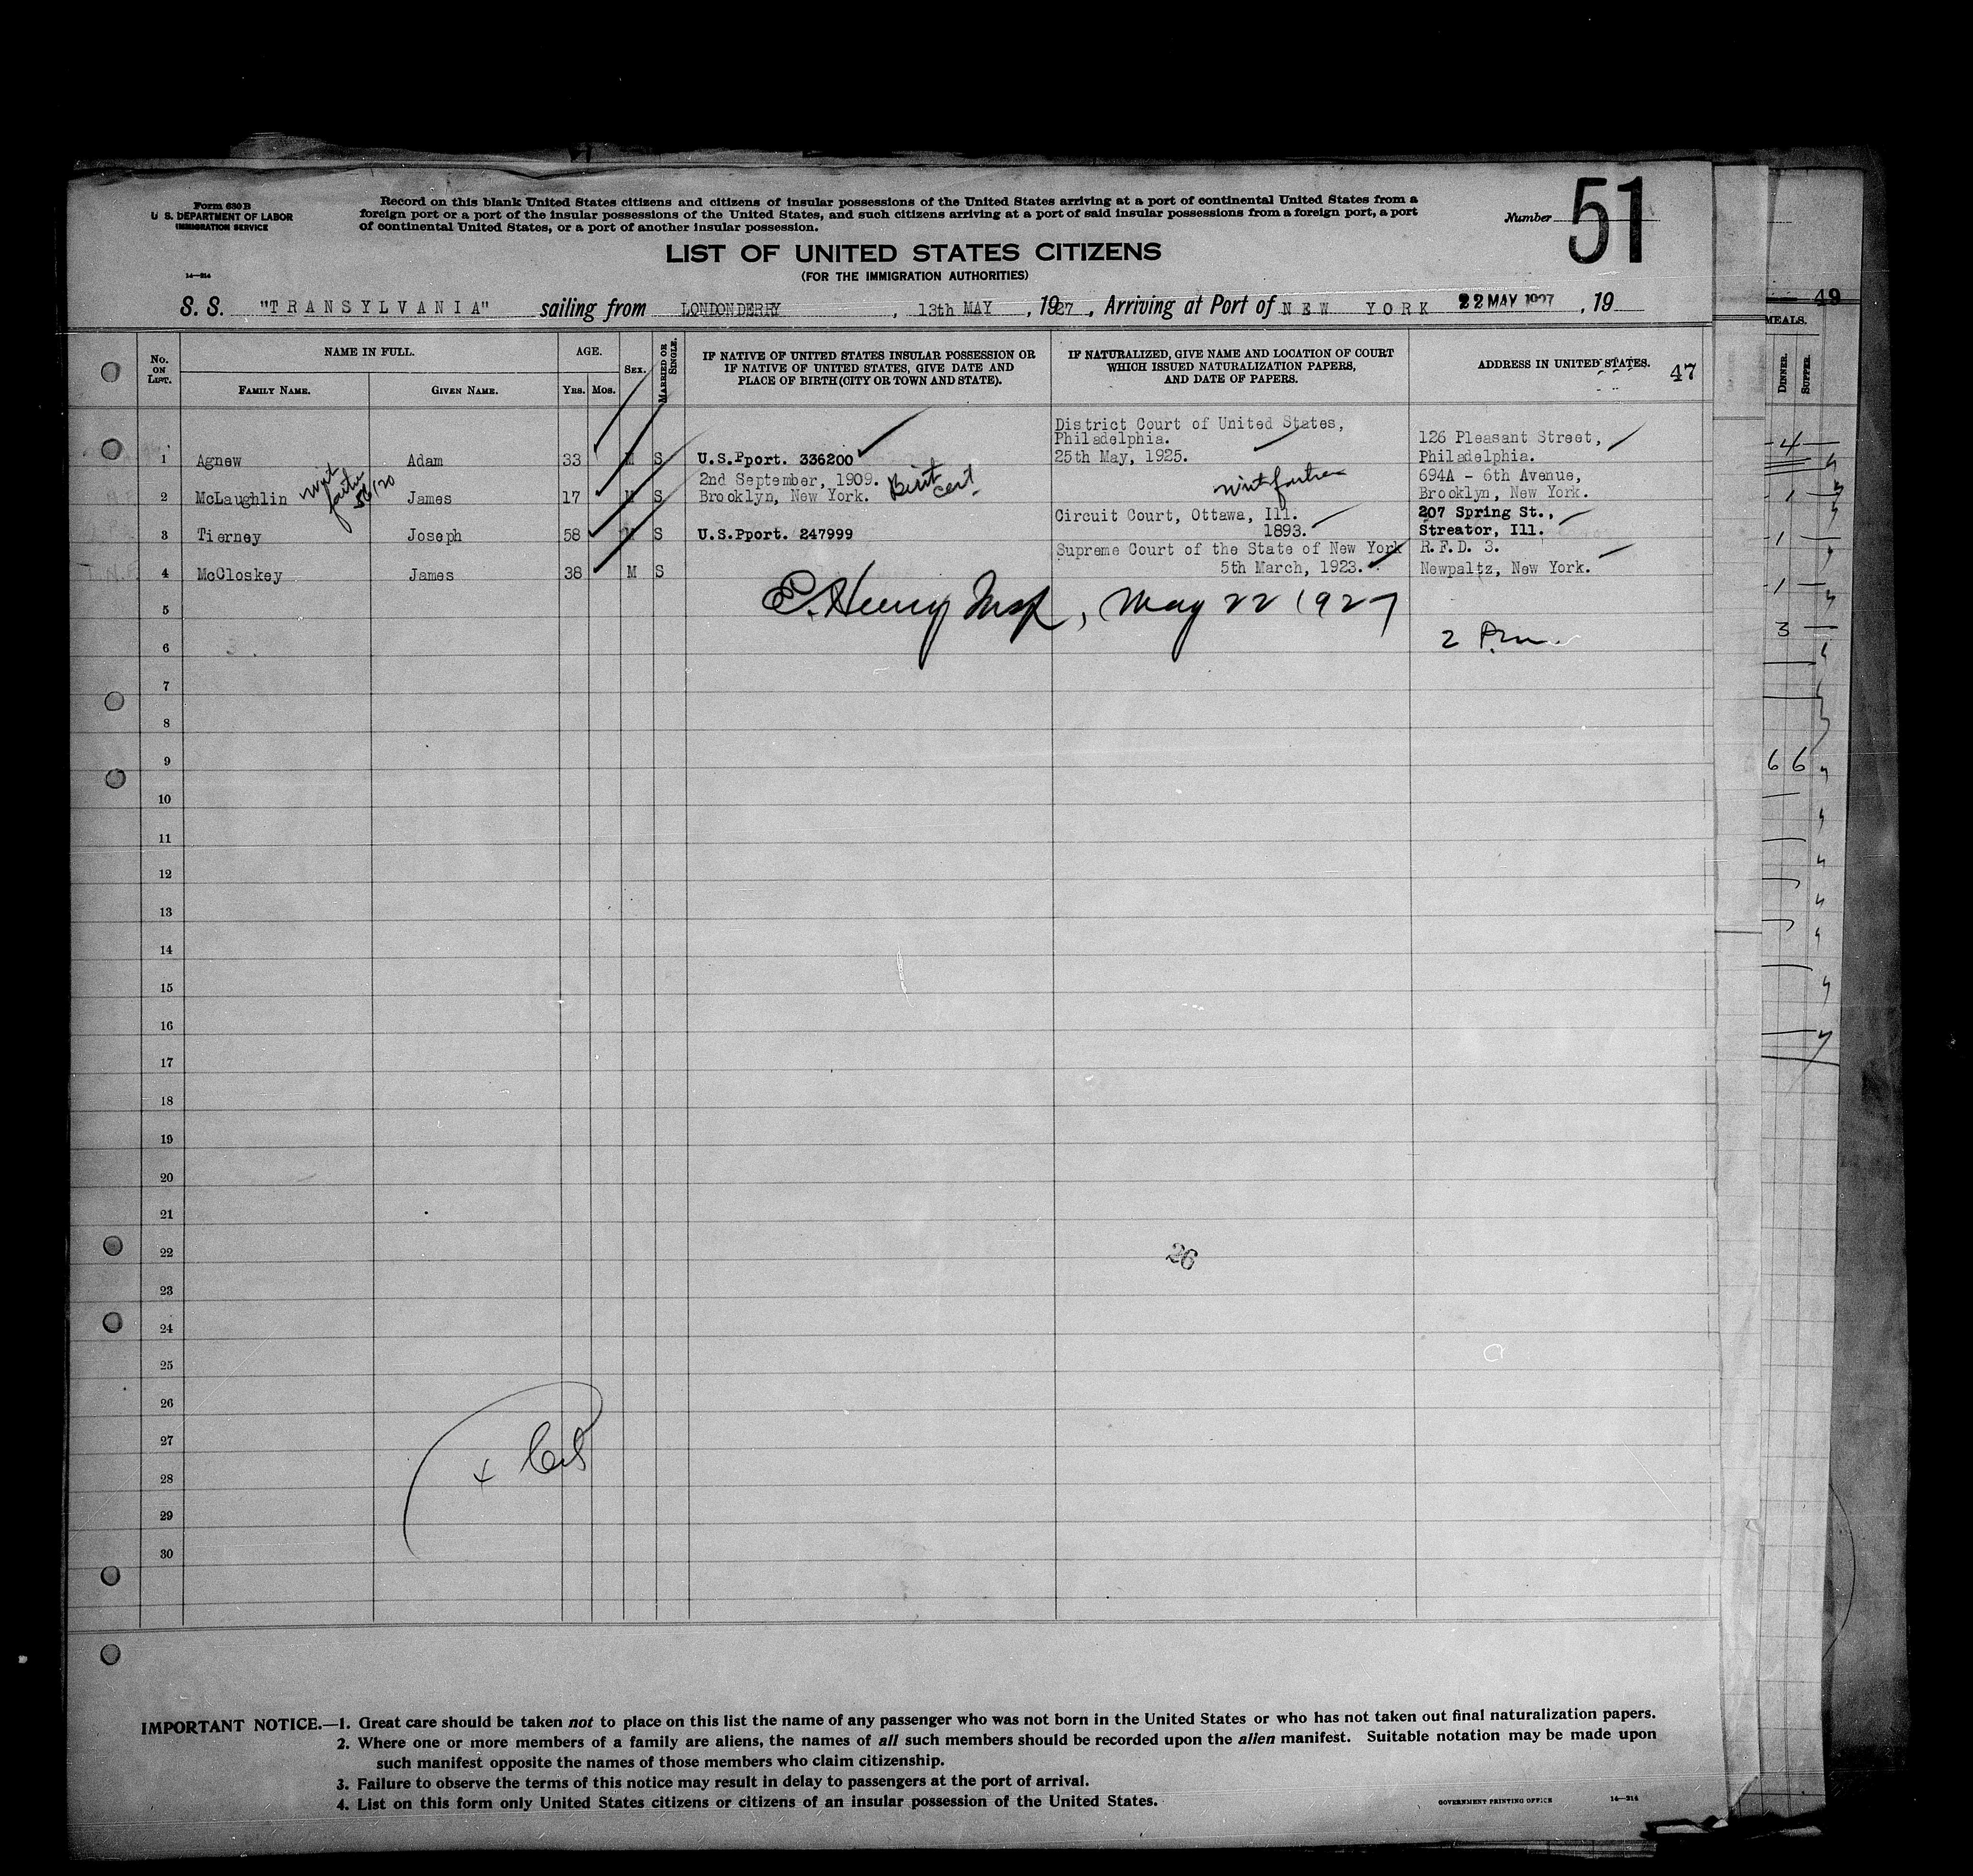 Form 630 B
U. S. DEPARTMENT OF LABOR
IMMIGRATION SERVICE
14—214
Record on this blank United States citizens and citizens of insular possessions of the United States arriving at a port of continental United States from a
foreign port or a port of the insular possessions of the United States, and such citizens arriving at a port of said insular possessions from a foreign port, a port
of continental United States, or a port of another insular possession.
Number 51
LIST OF UNITED STATES CITIZENS
(FOR THE IMMIGRATION AUTHORITIES)
S. S. "TRANSYLVANIA" sailing from LONDONDERRY, 13th MAY, 1927, Arriving at Port of NEW YORK 22 MAY 1927, 19
No. ON LIST.
NAME IN FULL.
FAMILY NAME. GIVEN NAME.
AGE.
YRS. MOS.
SEX.
MARRIED OR SINGLE.
IF NATIVE OF UNITED STATES INSULAR POSSESSION OR
IF NATIVE OF UNITED STATES, GIVE DATE AND
PLACE OF BIRTH (CITY OR TOWN AND STATE).
IF NATURALIZED, GIVE NAME AND LOCATION OF COURT
WHICH ISSUED NATURALIZATION PAPERS,
AND DATE OF PAPERS.
ADDRESS IN UNITED STATES. 47
District Court of United States,
Philadelphia. 126 Pleasant Street,
1 Agnew Adam 33 M S U.S.Pport. 336200 25th May, 1925. Philadelphia.
2nd September, 1909. 694A - 6th Avenue,
2 McLaughlin James 17 M S Brooklyn, New York. Birth cert. Brooklyn, New York.
Circuit Court, Ottawa, Ill. 207 Spring St.,
3 Tierney Joseph 58 M S U.S.Pport. 247999 1893. Streator, Ill.
Supreme Court of the State of New York R.F.D. 3.
4 McCloskey James 38 M S 5th March, 1923. Newpaltz, New York.
5 E. Henry Insp, May 22 1927
6 2 P.m.
7
8
9
10
11
12
13
14
15
16
17
18
19
20
21
22 26
23
24
25
26
27
28
29
30
IMPORTANT NOTICE.—1. Great care should be taken not to place on this list the name of any passenger who was not born in the United States or who has not taken out final naturalization papers.
2. Where one or more members of a family are aliens, the names of all such members should be recorded upon the alien manifest. Suitable notation may be made upon
such manifest opposite the names of those members who claim citizenship.
3. Failure to observe the terms of this notice may result in delay to passengers at the port of arrival.
4. List on this form only United States citizens or citizens of an insular possession of the United States.
GOVERNMENT PRINTING OFFICE 14—214
49
MEALS.
DINNER.
SUPPER.
4
1
1
1
3
6 6